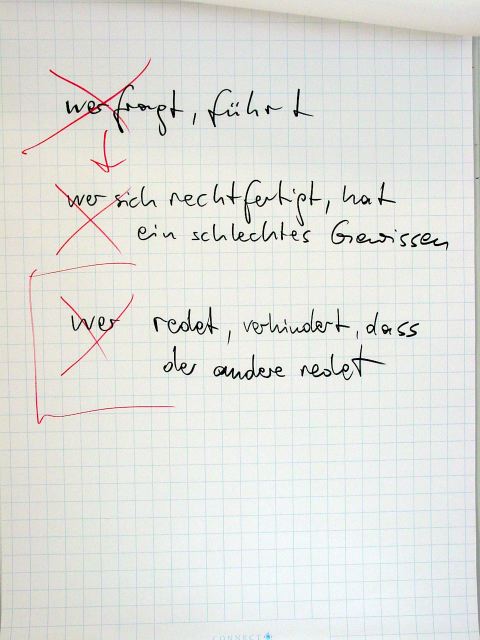 wer fragt, führt
wer sich rechtfertigt, hat
ein schlechtes Gewissen
wer redet, verhindert, dass
der andere redet
CONNECT